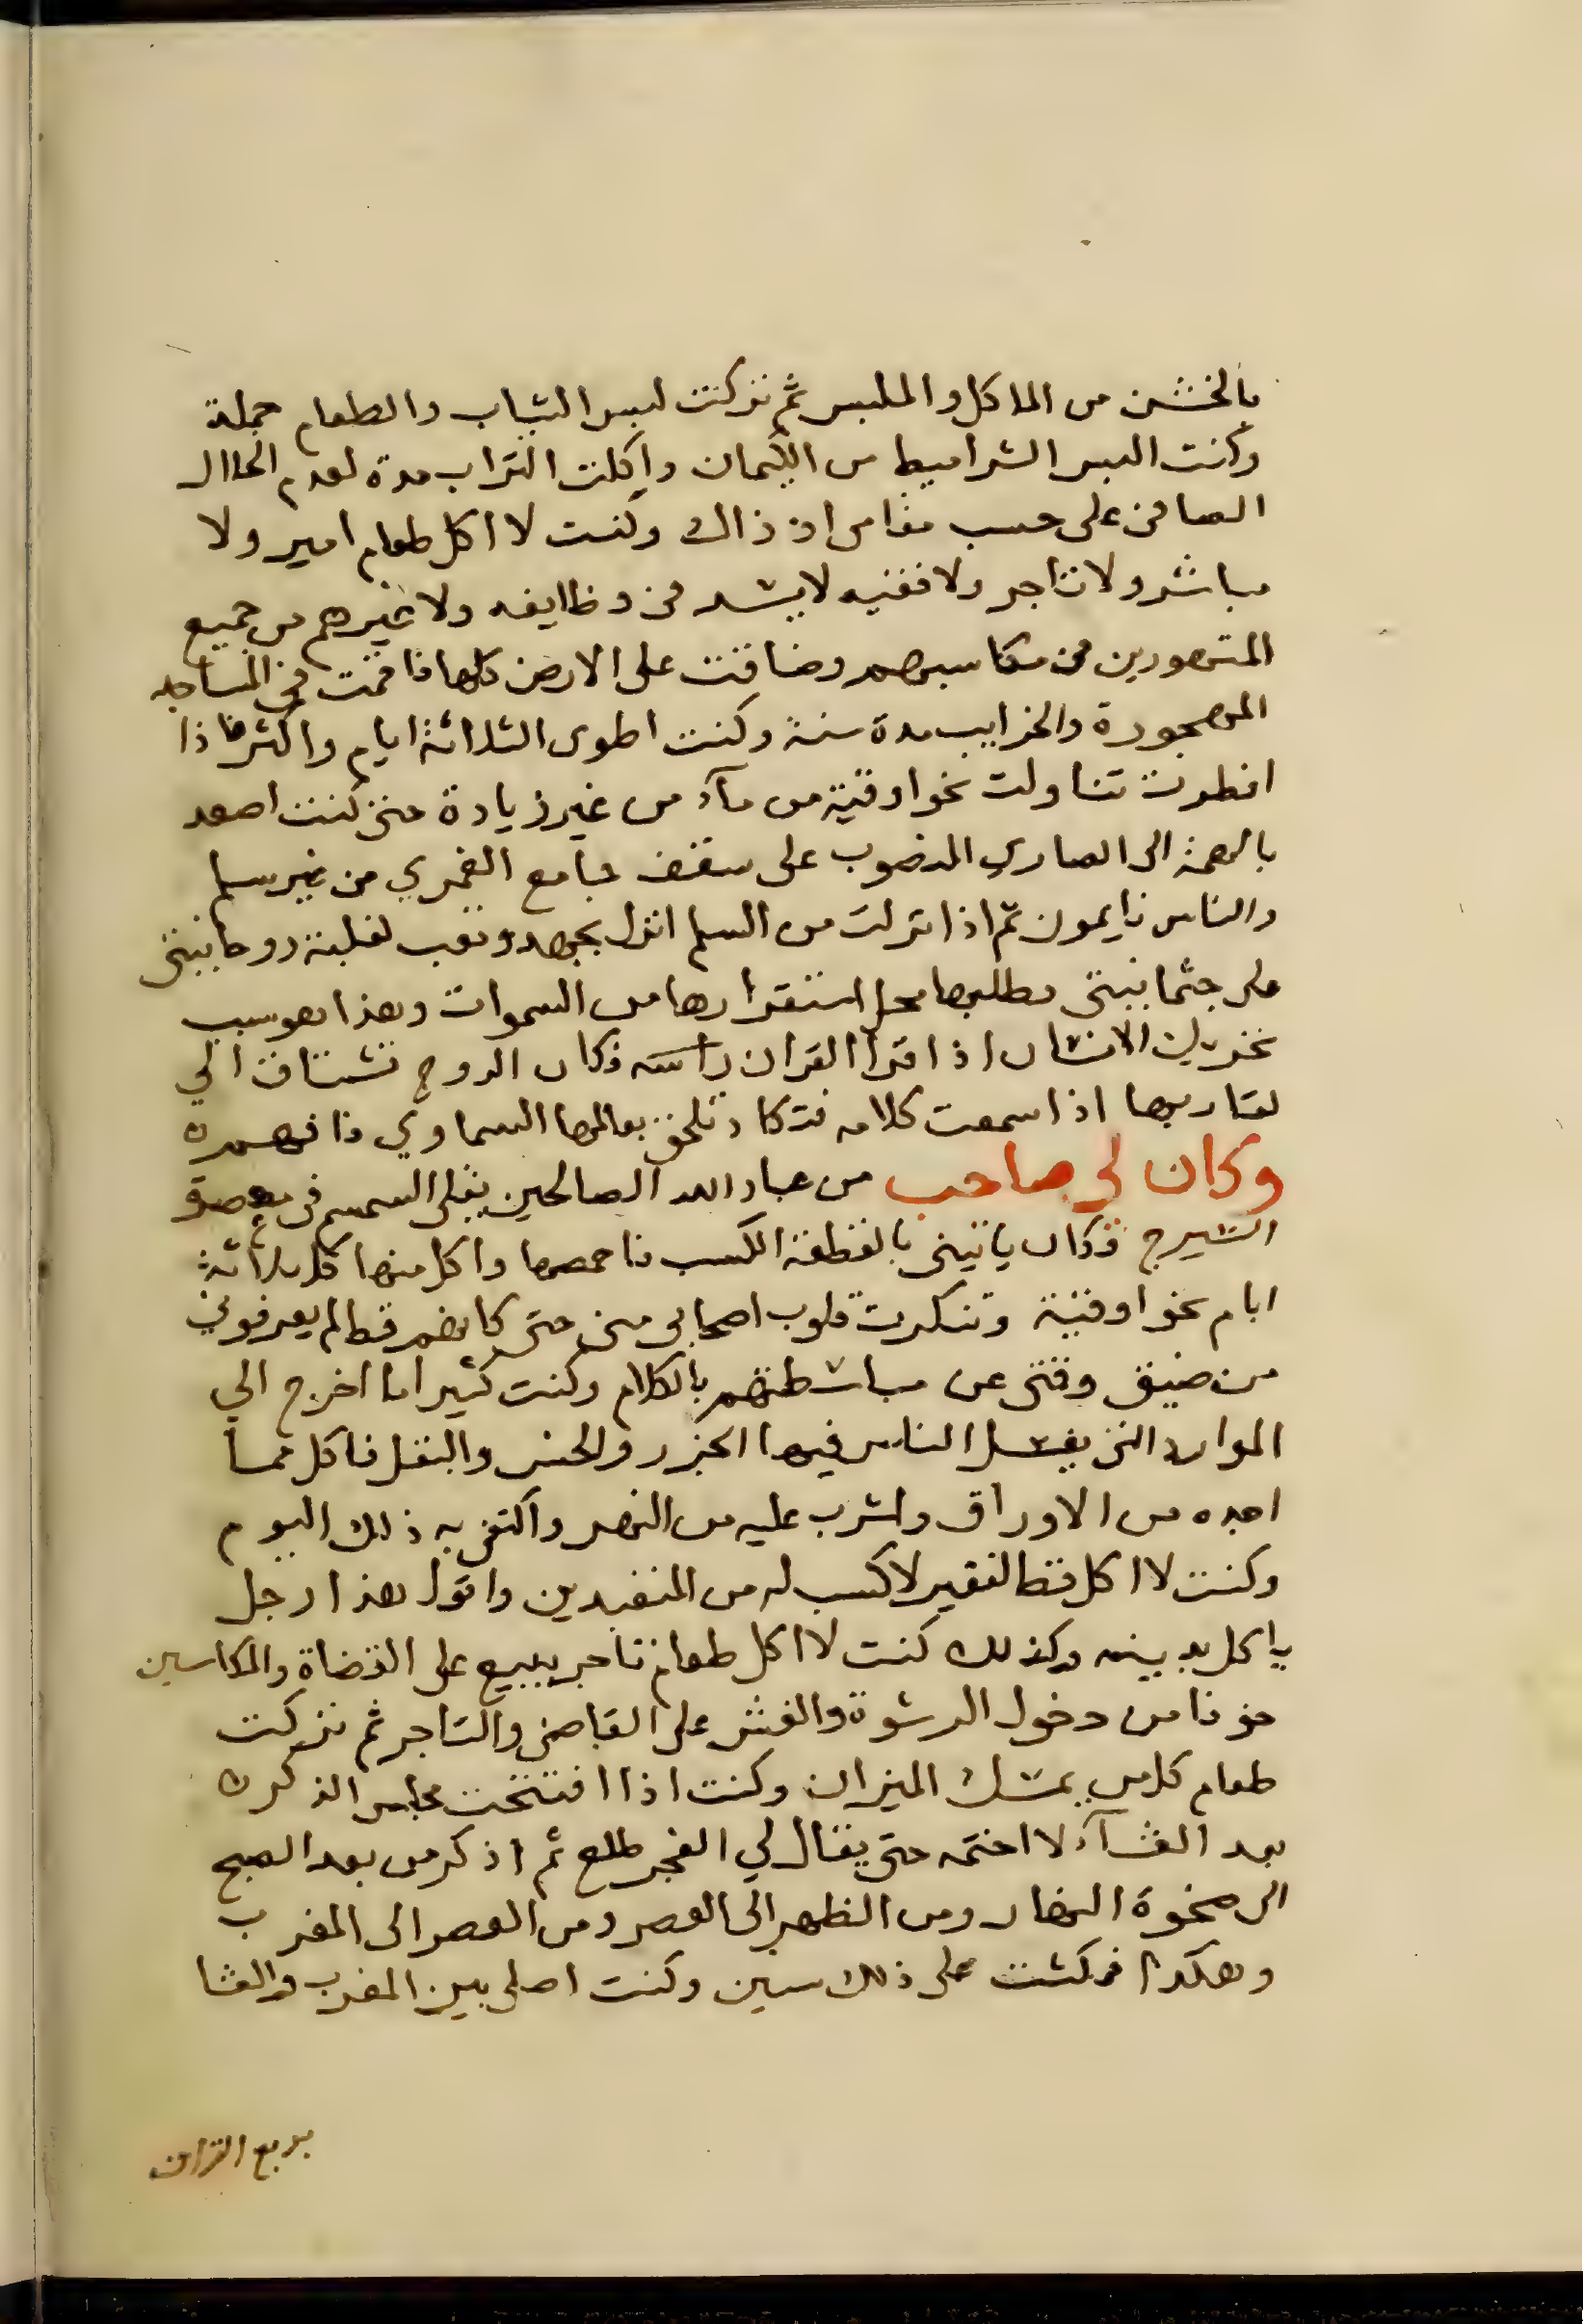 بالخشن من الماكل والملبس ثم تركت لبس الثياب والطعام جملة
وكنت البس الشراميط من الكيمان واكلت التراب مدة لعدم الحلال
الصافي على حسب مقامي اذ ذاك وكنت لا اكل طعام امير ولا
مباشر ولا تاجر ولا فقيه لا يسد في وظايفه ولا غيرهم من جميع
المتهورين في مكاسبهم وضاقت على الارض كلها فاقمت في المساجد
المهجورة والخرايب مدة سنة وكنت اطوى الثلاثة ايام واكثر فاذا
افطرت تناولت نحو اوقية من مآء من غير زيادة حتى كنت اصعد
بالهمة الى الصاري المنصوب على سقف جامع الغمري من غير سلم
والناس نايمون ثم اذا نزلت من السلم انزل بجهد وتعب لغلبة روحانيتي
على جثمانيتي وطلبها محل استقرارها من السموات وهذا هو سبب
تحريك الانسان اذا قرا القران راسه فكان الروح تشتاق الي
لقا ربها اذا سمعت كلامه فتكاد تلحق بعالمها السماوي فافهم
وكان لي صاحب من عباد الله الصالحين يقلى السمسم في معصرة
الشيرج فكان ياتينى بالقطعة الكسب فاحمصها واكل منها كل ثلاثة
ايام نحو اوقية وتنكرت قلوب اصحابي مني حتى كانهم قط لم يعرفوني
من ضيق وقتى عن مباسطتهم بالكلام وكنت كثيرا ما اخرج الي
الموارد التى يغسل الناس فيها الجزر والخس والبقل فاكل مما
اجده من الاوراق واشرب عليه من النهر واكتفى به ذلك اليوم
وكنت لا اكل قط لفقير لا كسب له من المتعبدين واقول هذا رجل
ياكل بدينه وكذلك كنت لا اكل طعام تاجر يبيع على القضاة والمكاسين
خوفا من دخول الرشوة والغش على القاضى والتاجر ثم تركت
طعام كل من يمسك الميزان وكنت اذا افتتحت مجلس الذكر
بعد العشآء لا اختمه حتى يقال لي الفجر طلع ثم اذكر من بعد الصبح
الى ضحوة النهار ومن الظهر الى العصر ومن العصر الى المغرب
وهكذا فمكثت على ذلك سنين وكنت اصلى بين المغرب والعشا
بربع القران